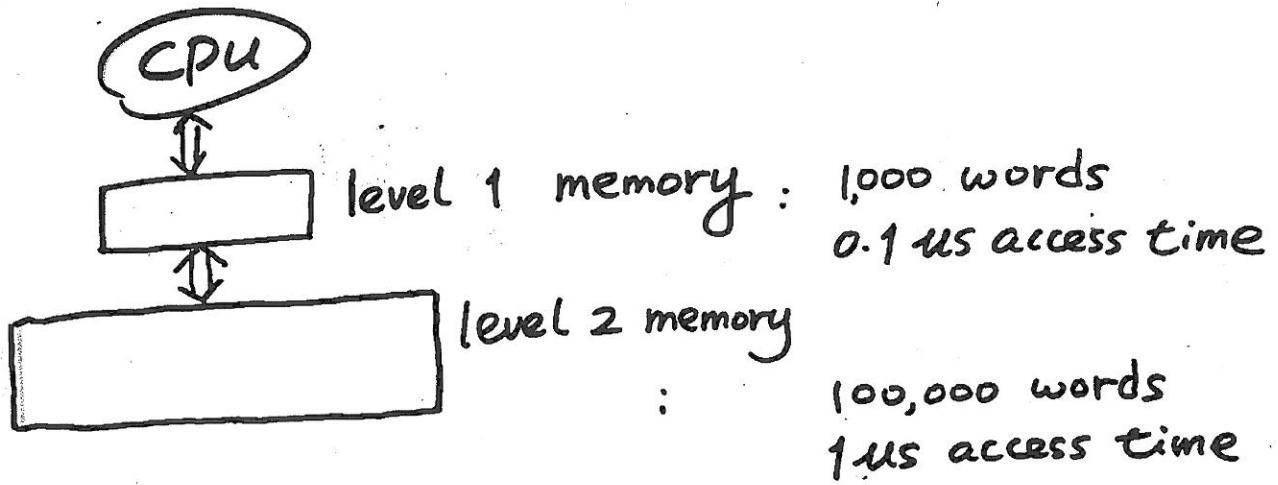 CPU
level 1 memory : 1,000 words
0.1 us access time
level 2 memory
: 100,000 words
1 us access time